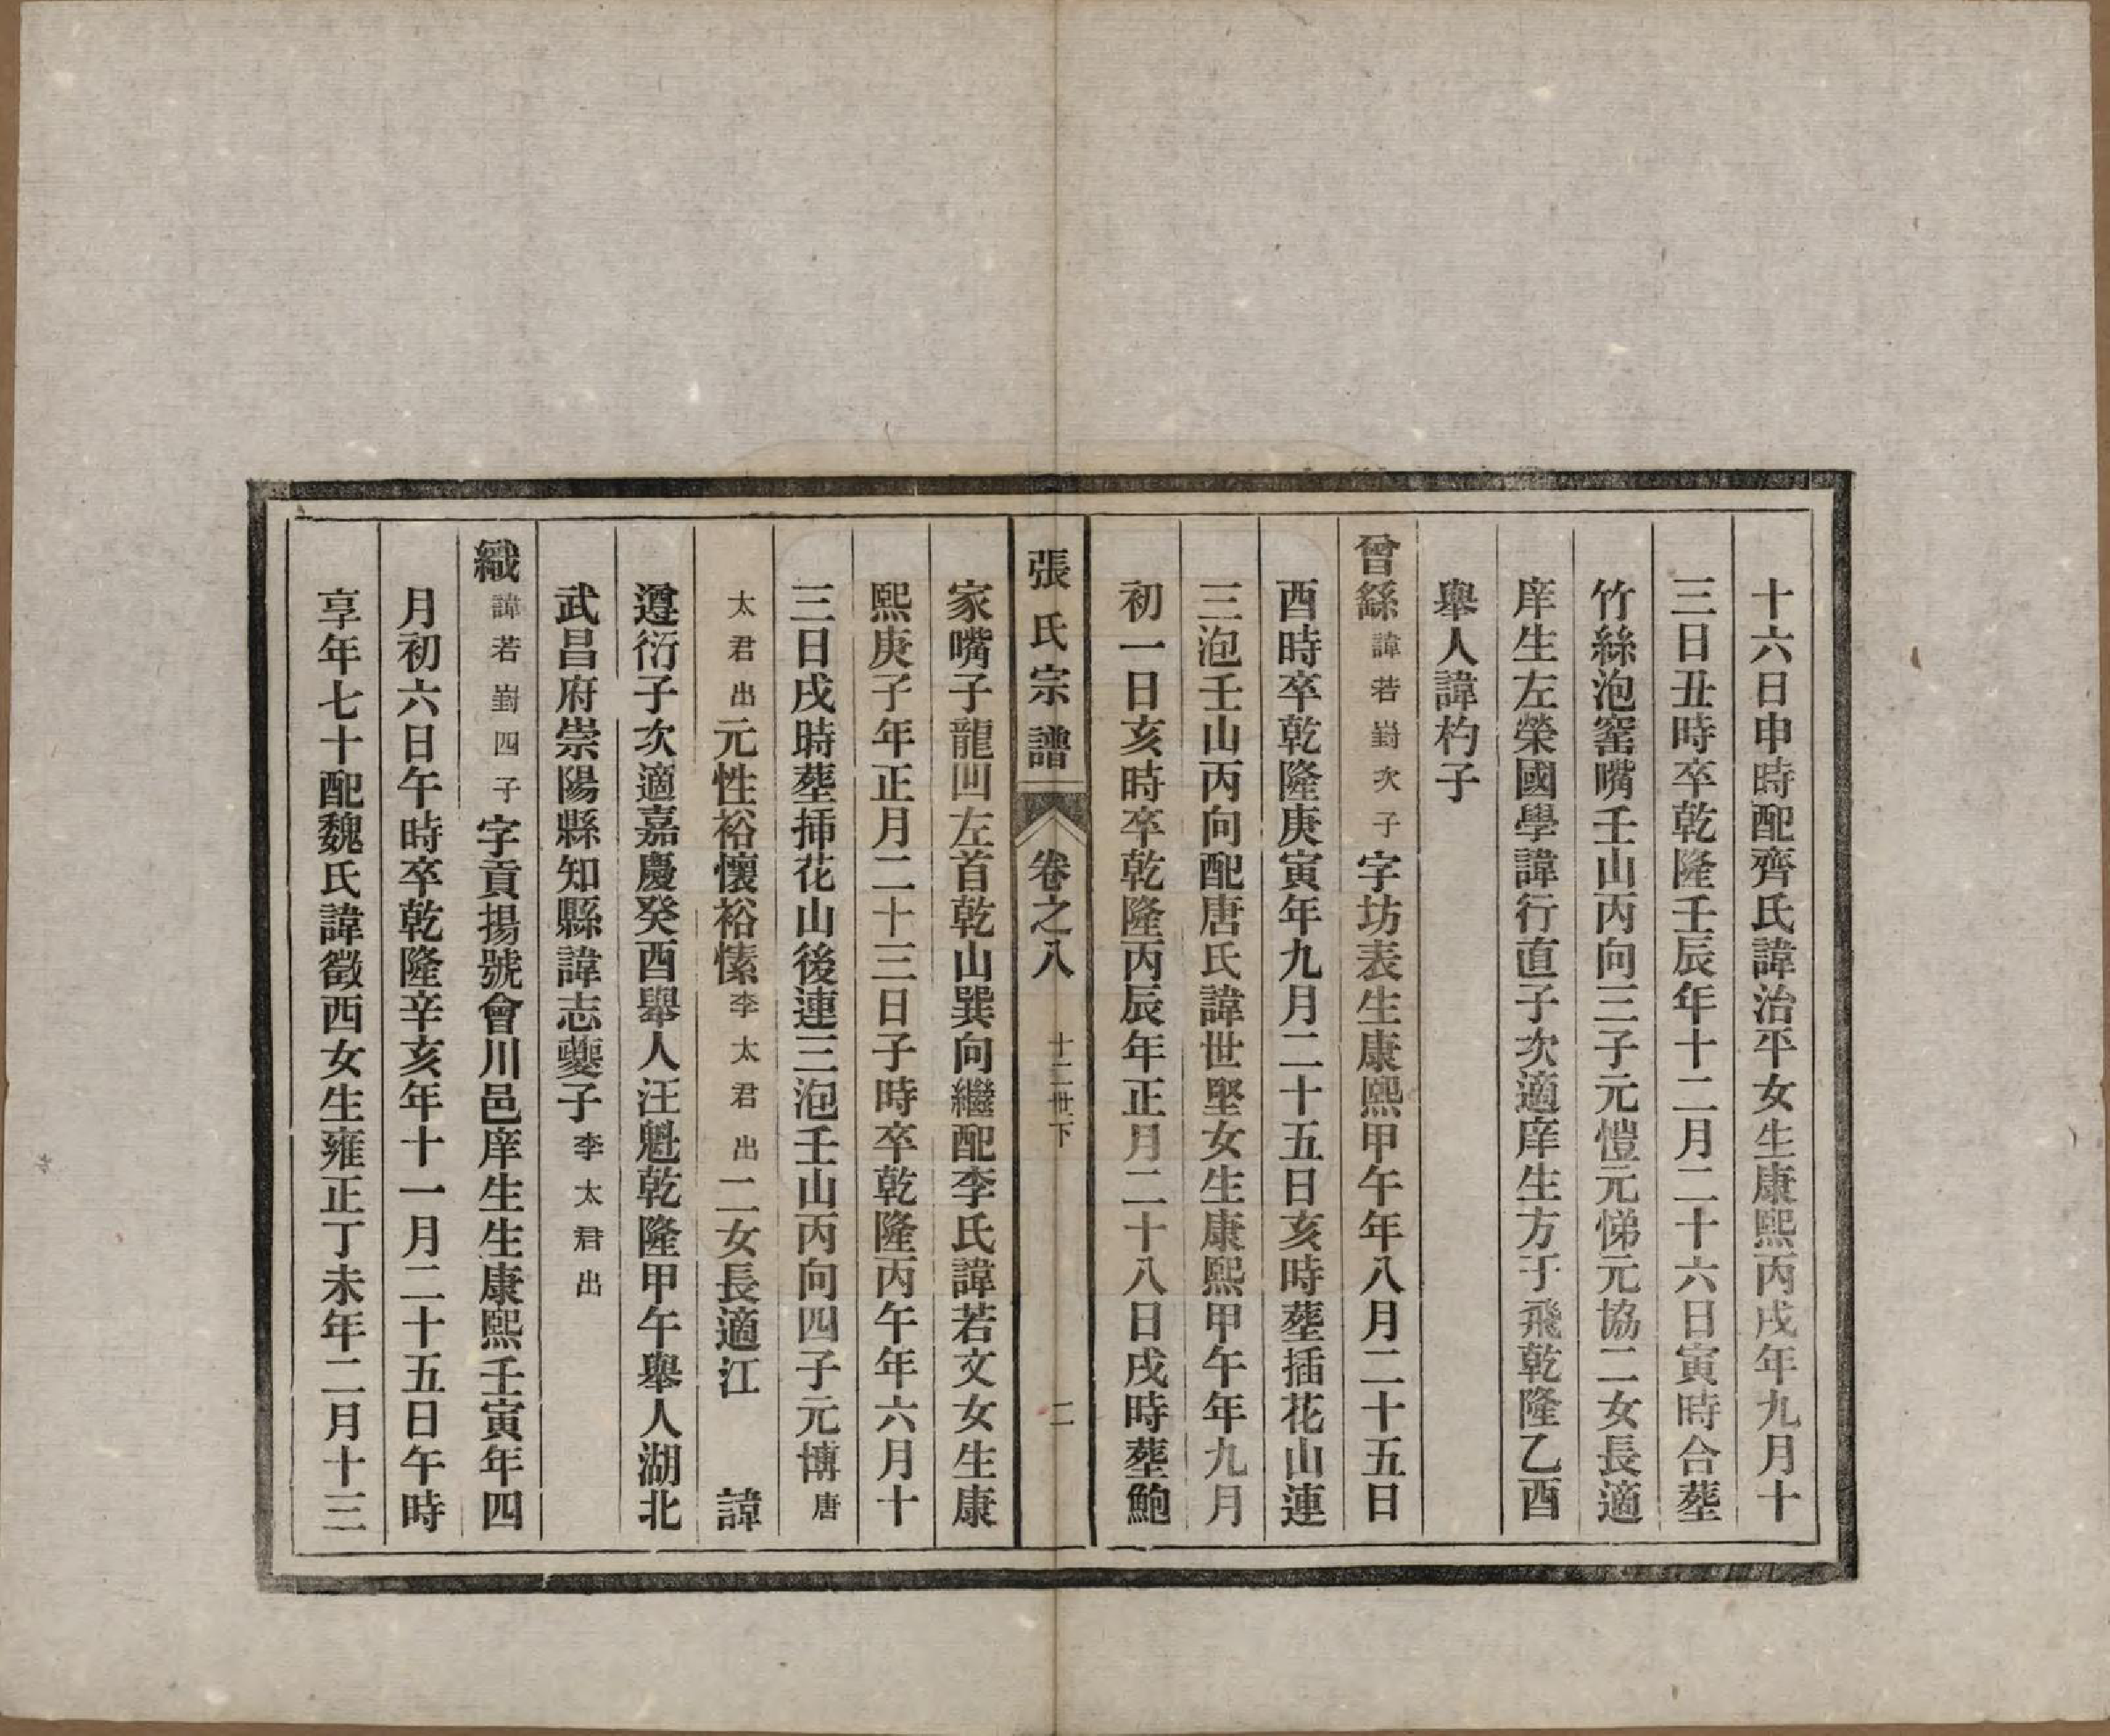 十六日申時配齊氏諱治平女生康熙丙戌年九月十
三日丑時卒乾隆壬辰年十二月二十六日寅時合葬
竹絲泡窰嘴壬山丙向三子元愷元悌元協二女長適
庠生左榮國學諱行直子次適庠生方于飛乾隆乙酉
舉人諱杓子
曾繇諱若對次子字坊表生康熙甲午年八月二十五日
酉時卒乾隆庚寅年九月二十五日亥時葬插花山連
三泡壬山丙向配唐氏諱世堅女生康熙甲午年九月
初一日亥時卒乾隆丙辰年正月二十八日戌時葬鮑
張氏宗譜 卷之八 十二世下 二
家嘴子龍凹左首乾山巽向繼配李氏諱若文女生康
熙庚子年正月二十三日子時卒乾隆丙午年六月十
三日戌時葬插花山後連三泡壬山丙向四子元博唐
太君出元性裕懷裕愫李太君出二女長適江 諱
遵衍子次適嘉慶癸酉舉人汪魁乾隆甲午舉人湖北
武昌府崇陽縣知縣諱志夔子李太君出
織諱若對四子字貢揚號會川邑庠生生康熙壬寅年四
月初六日午時卒乾隆辛亥年十一月二十五日午時
享年七十配魏氏諱徵西女生雍正丁未年二月十三